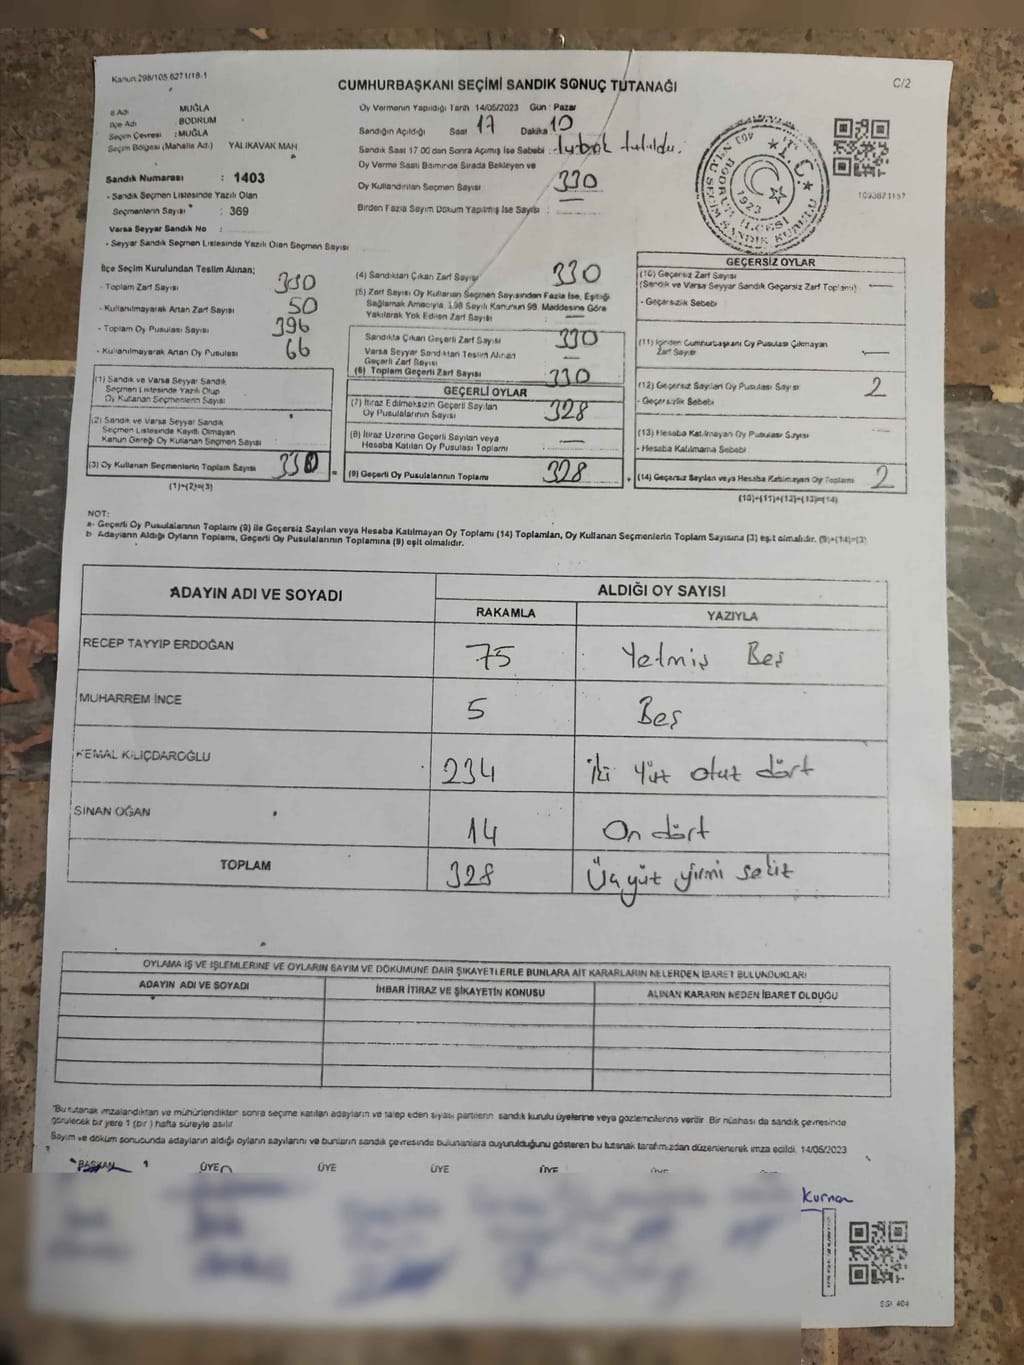 Kanun:298/105.6271/18.1
CUMHURBAŞKANI SEÇİMİ SANDIK SONUÇ TUTANAĞI
C/2
İl Adı MUĞLA
İlçe Adı BODRUM
Seçim Çevresi : MUĞLA
Seçim Bölgesi (Mahalle Adı) YALIKAVAK MAH
Oy Vermenin Yapıldığı Tarih 14/05/2023 Gün : Pazar
Sandığın Açıldığı Saat 17 Dakika 10
Sandık Saat 17.00 den Sonra Açılmış İse Sebebi : tutuldu.
Oy Verme Saati Bitiminde Sırada Bekleyen ve
Oy Kullandırılan Seçmen Sayısı 330
Birden Fazla Sayım Döküm Yapılmış İse Sayısı :
Sandık Numarası : 1403
- Sandık Seçmen Listesinde Yazılı Olan
Seçmenlerin Sayısı : 369
Varsa Seyyar Sandık No :
- Seyyar Sandık Seçmen Listesinde Yazılı Olan Seçmen Sayısı
T.C.
BODRUM İLÇESİ
1923
İlçe Seçim Kurulundan Teslim Alınan;
- Toplam Zarf Sayısı 380
- Kullanılmayarak Artan Zarf Sayısı 50
- Toplam Oy Pusulası Sayısı 396
- Kullanılmayarak Artan Oy Pusulası 66
(1) Sandık ve Varsa Seyyar Sandık
Seçmen Listesinde Yazılı Olup
Oy Kullanan Seçmenlerin Sayısı
(2) Sandık ve Varsa Seyyar Sandık
Seçmen Listesinde Kayıtlı Olmayan
Kanun Gereği Oy Kullanan Seçmen Sayısı
(3) Oy Kullanan Seçmenlerin Toplam Sayısı 330
(1)+(2)=(3)
(4) Sandıktan Çıkan Zarf Sayısı 330
(5) Zarf Sayısı Oy Kullanan Seçmen Sayısından Fazla İse, Eşitliği
Sağlamak Amacıyla, 298 Sayılı Kanunun 98. Maddesine Göre
Yakılarak Yok Edilen Zarf Sayısı —
Sandıkta Çıkan Geçerli Zarf Sayısı 330
Varsa Seyyar Sandıktan Teslim Alınan
Geçerli Zarf Sayısı —
(6) Toplam Geçerli Zarf Sayısı 330
GEÇERLİ OYLAR
(7) İtiraz Edilmeksizin Geçerli Sayılan
Oy Pusulalarının Sayısı 328
(8) İtiraz Üzerine Geçerli Sayılan veya
Hesaba Katılan Oy Pusulası Toplamı —
(9) Geçerli Oy Pusulalarının Toplamı 328
GEÇERSİZ OYLAR
(10) Geçersiz Zarf Sayısı
(Sandık ve Varsa Seyyar Sandık Geçersiz Zarf Toplamı) —
- Geçersizlik Sebebi
(11) İçinden Cumhurbaşkanı Oy Pusulası Çıkmayan
Zarf Sayısı —
(12) Geçersiz Sayılan Oy Pusulası Sayısı 2
- Geçersizlik Sebebi
(13) Hesaba Katılmayan Oy Pusulası Sayısı —
- Hesaba Katılmama Sebebi
(14) Geçersiz Sayılan veya Hesaba Katılmayan Oy Toplamı 2
(10)+(11)+(12)+(13)=(14)
NOT:
a- Geçerli Oy Pusulalarının Toplamı (9) ile Geçersiz Sayılan veya Hesaba Katılmayan Oy Toplamı (14) Toplamları, Oy Kullanan Seçmenlerin Toplam Sayısına (3) eşit olmalıdır. (9)+(14)=(3)
b- Adayların Aldığı Oyların Toplamı, Geçerli Oy Pusulalarının Toplamına (9) eşit olmalıdır.
ADAYIN ADI VE SOYADI
ALDIĞI OY SAYISI
RAKAMLA YAZIYLA
RECEP TAYYİP ERDOĞAN 75 Yetmiş Beş
MUHARREM İNCE 5 Beş
KEMAL KILIÇDAROĞLU 234 İki yüz otuz dört
SİNAN OĞAN 14 On dört
TOPLAM 328 Üçyüz yirmi sekiz
OYLAMA İŞ VE İŞLEMLERİNE VE OYLARIN SAYIM VE DÖKÜMÜNE DAİR ŞİKAYETLERLE BUNLARA AİT KARARLARIN NELERDEN İBARET BULUNDUKLARI
ADAYIN ADI VE SOYADI İHBAR İTİRAZ VE ŞİKAYETİN KONUSU ALINAN KARARIN NEDEN İBARET OLDUĞU
"Bu tutanak imzalandıktan ve mühürlendikten sonra seçime katılan adayların ve talep eden siyasi partilerin sandık kurulu üyelerine veya gözlemcilerine verilir. Bir nüshası da sandık çevresinde
görülecek bir yere 1 (bir) hafta süreyle asılır
Sayım ve döküm sonucunda adayların aldığı oyların sayılarını ve bunların sandık çevresinde bulunanlara duyurulduğunu gösteren bu tutanak tarafımızdan düzenlenerek imza edildi. 14/05/2023
BAŞKAN ÜYE ÜYE ÜYE ÜYE